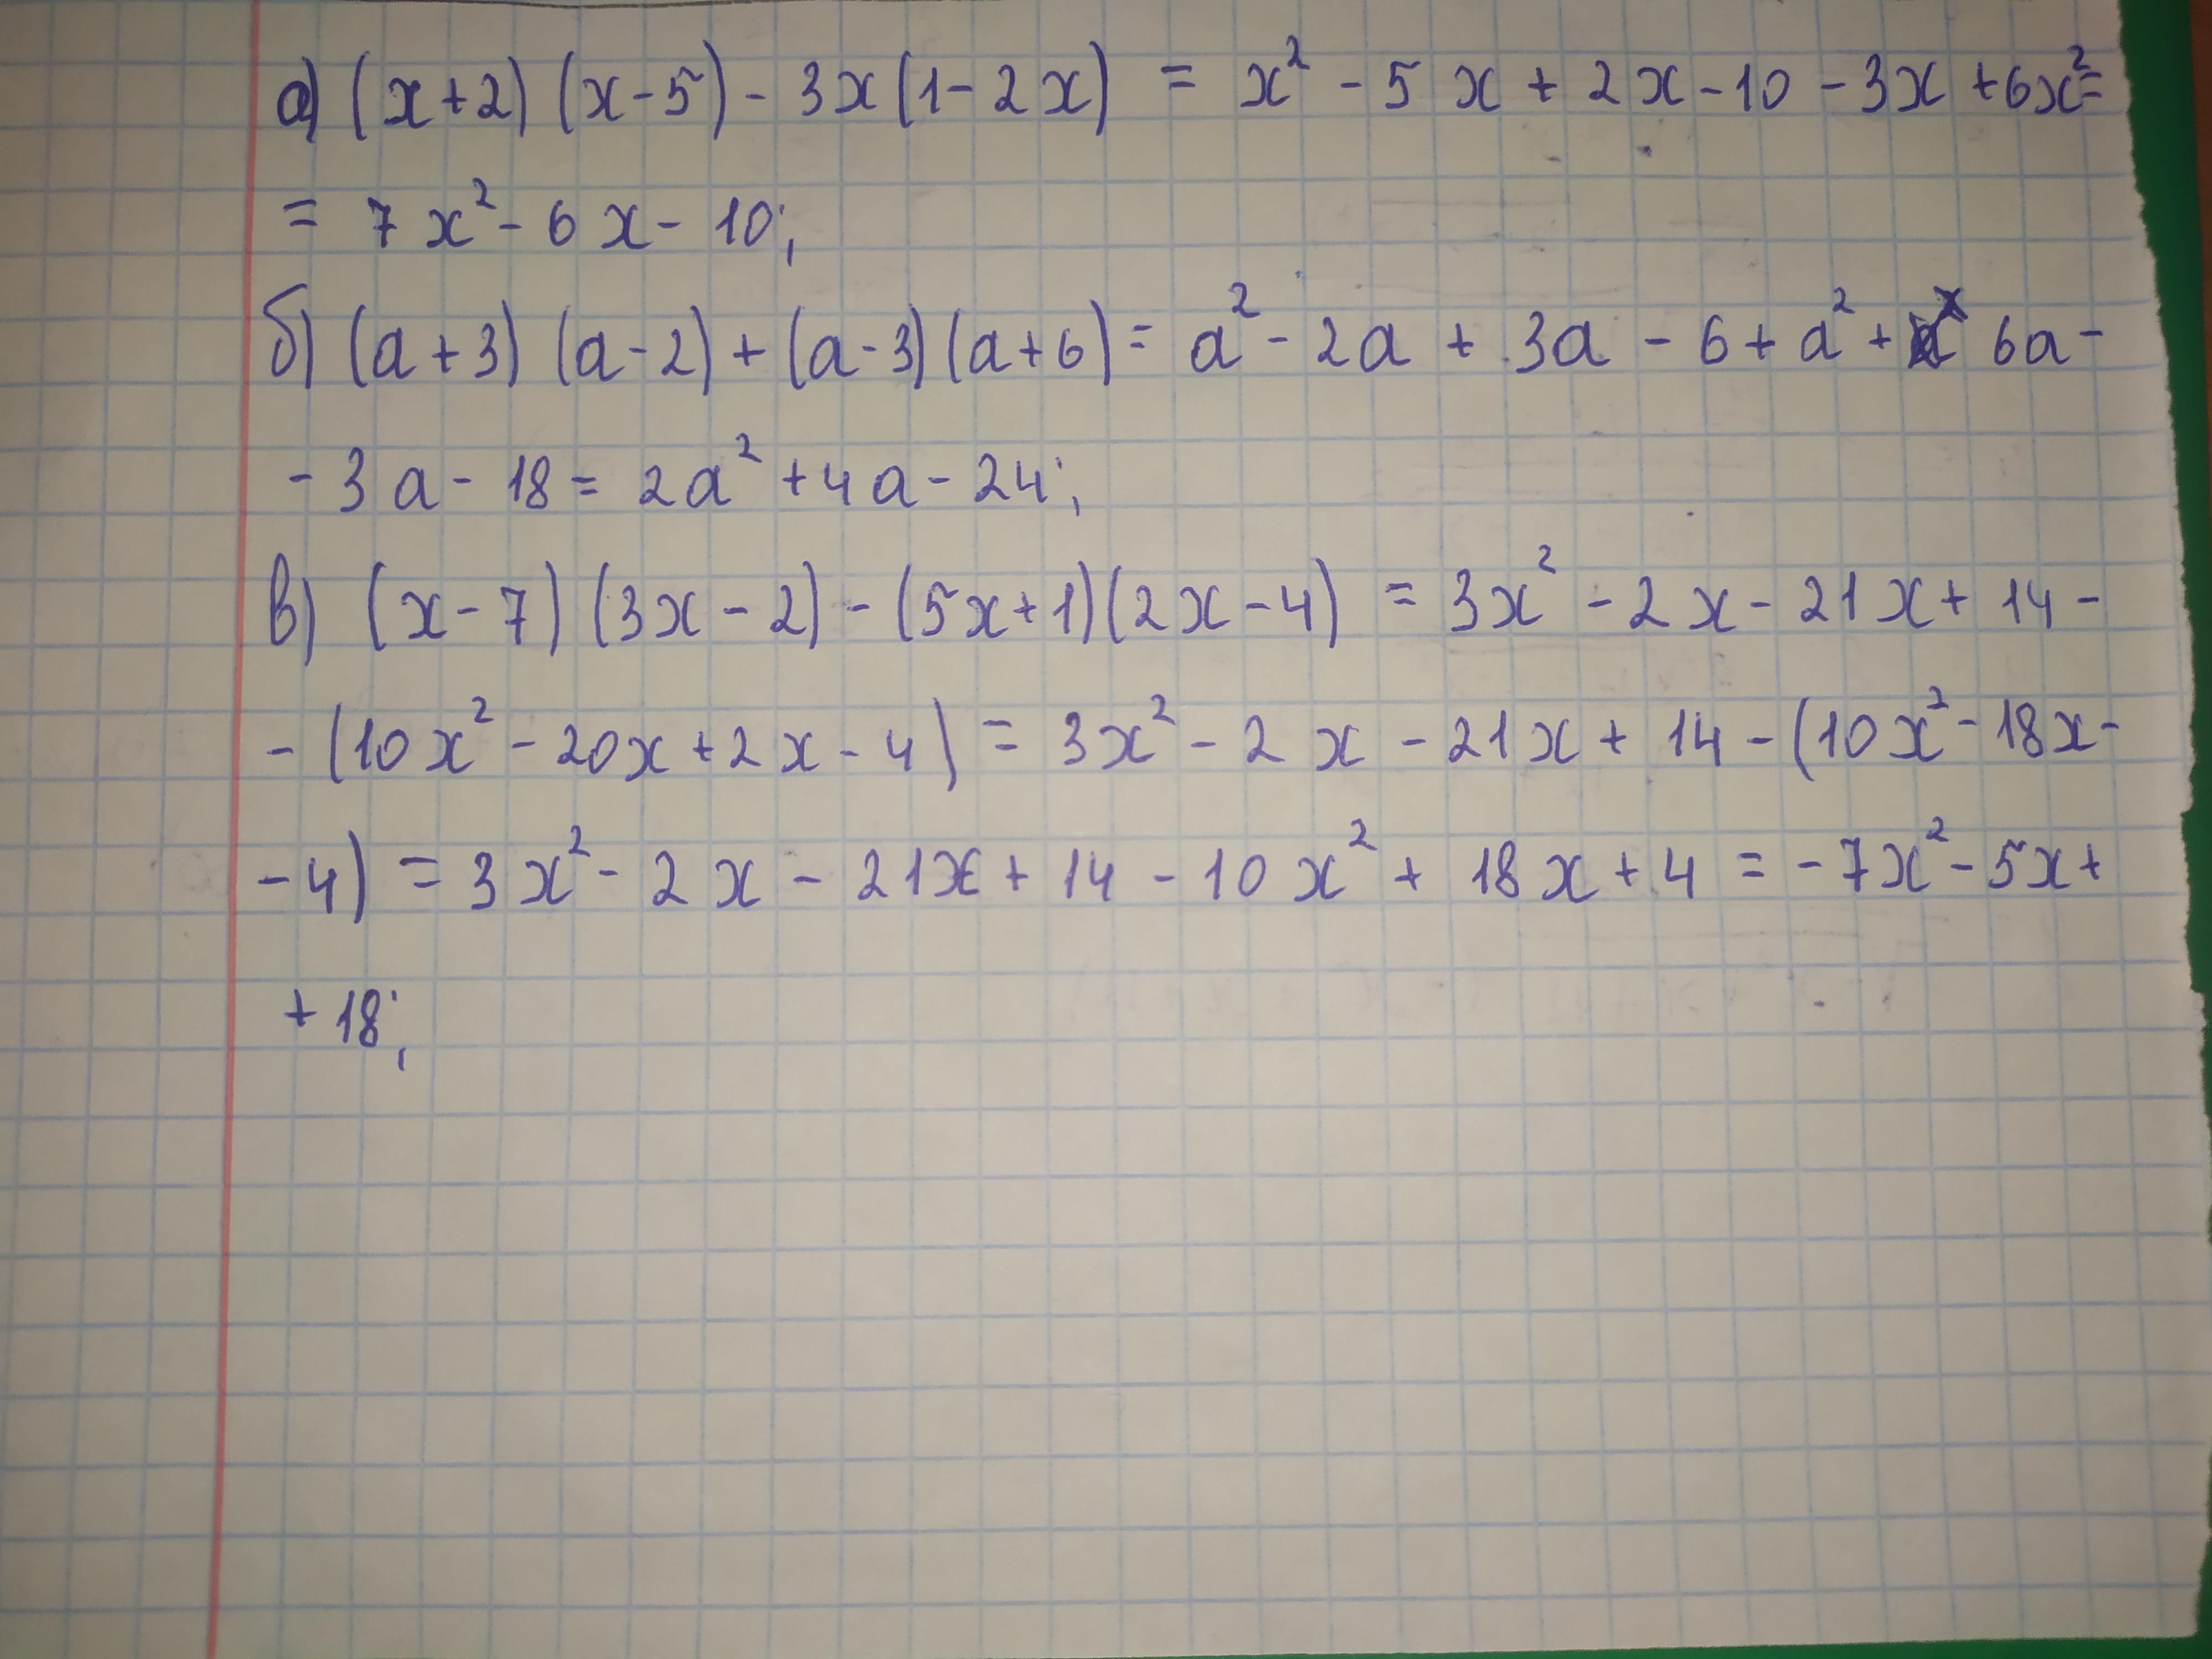 а) (x+2) (x-5) - 3x(1-2x) = x² - 5x + 2x - 10 - 3x + 6x² =
= 7x² - 6x - 10;
б) (a+3) (a-2) + (a-3) (a+6) = a² - 2a + 3a - 6 + a² + 6a -
- 3a - 18 = 2a² + 4a - 24;
в) (x-7) (3x-2) - (5x+1) (2x-4) = 3x² - 2x - 21x + 14 -
- (10x² - 20x + 2x - 4) = 3x² - 2x - 21x + 14 - (10x² - 18x -
- 4) = 3x² - 2x - 21x + 14 - 10x² + 18x + 4 = -7x² - 5x +
+ 18;